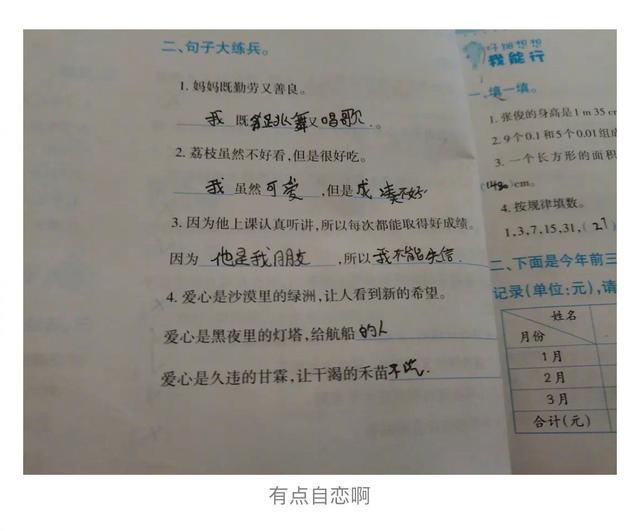 二、句子大练兵。
1. 妈妈既勤劳又善良。
我 既能跳舞又唱歌。
2. 荔枝虽然不好看,但是很好吃。
我 虽然 可爱 ,但是 成 不好
3. 因为他上课认真听讲,所以每次都能取得好成绩。
因为 他是我朋友 ,所以 我不能失信.
4. 爱心是沙漠里的绿洲,让人看到新的希望。
爱心是黑夜里的灯塔,给航船 的人
爱心是久违的甘霖,让干渴的禾苗
好想想
我能行
一、填一填。
1. 张俊的身高是1 m 35 c
2. 9个0.1和5个0.01组
3. 一个长方形的面积
cm。
4. 按规律填数。
1,3,7,15,31,( 27 )
二、下面是今年前三
记录(单位:元),请
姓名
月份
1月
2月
3月
合计(元)
有点自恋啊